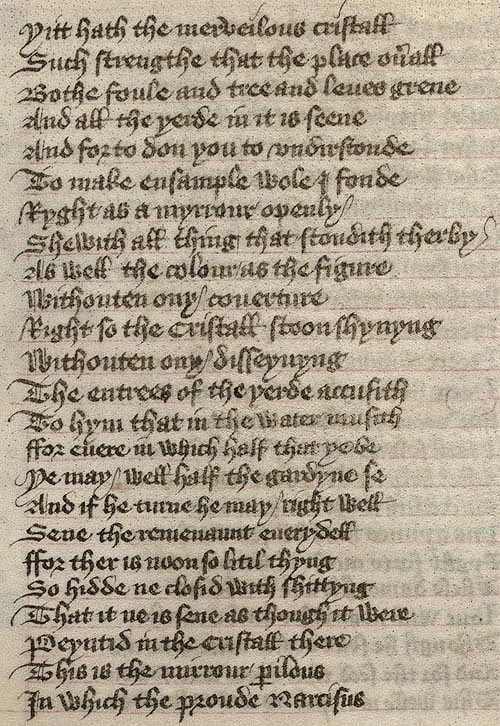 Yitt hath the merveilous cristall
Such strengthe that the place ouerall
Bothe foule and tree and leues grene
And all the yerde in it is seene
And for to don you to vndirstonde
To make ensample wole I fonde
Ryght as a myrrour openly
Shewith all thing that stondith therby
As well the colour as the figure
Withouten ony couerture
Right so the Cristall stoon shynyng
Withouten ony disseyuyng
The entrees of the yerde accusith
To hym that in the water musith
ffor euere in which half that ye be
Ye may well half the gardyne se
And if he turne he may right well
Sene the remenaunt euerydell
ffor ther is noon so litil thyng
So hidde ne closid with shittyng
That it ne is sene as though it were
Peyntid in the Cristall there
This is the mirrour perilous
In which the proude Narcisus